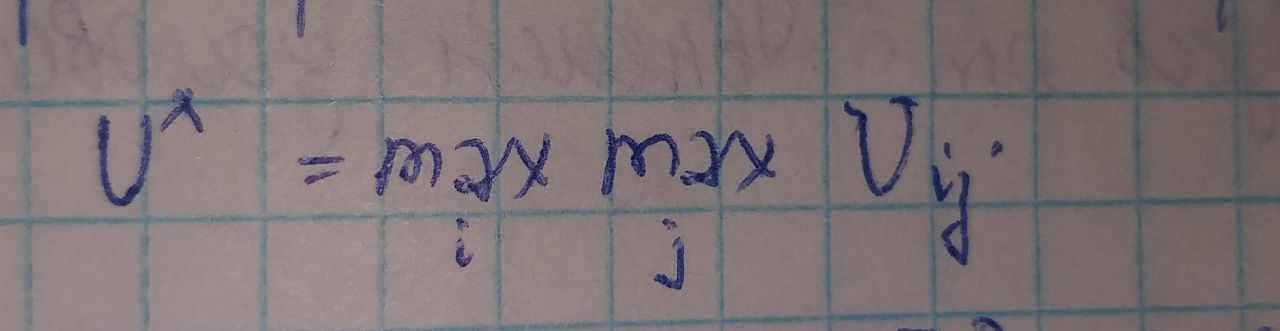 U^* = max_i max_j U_ij